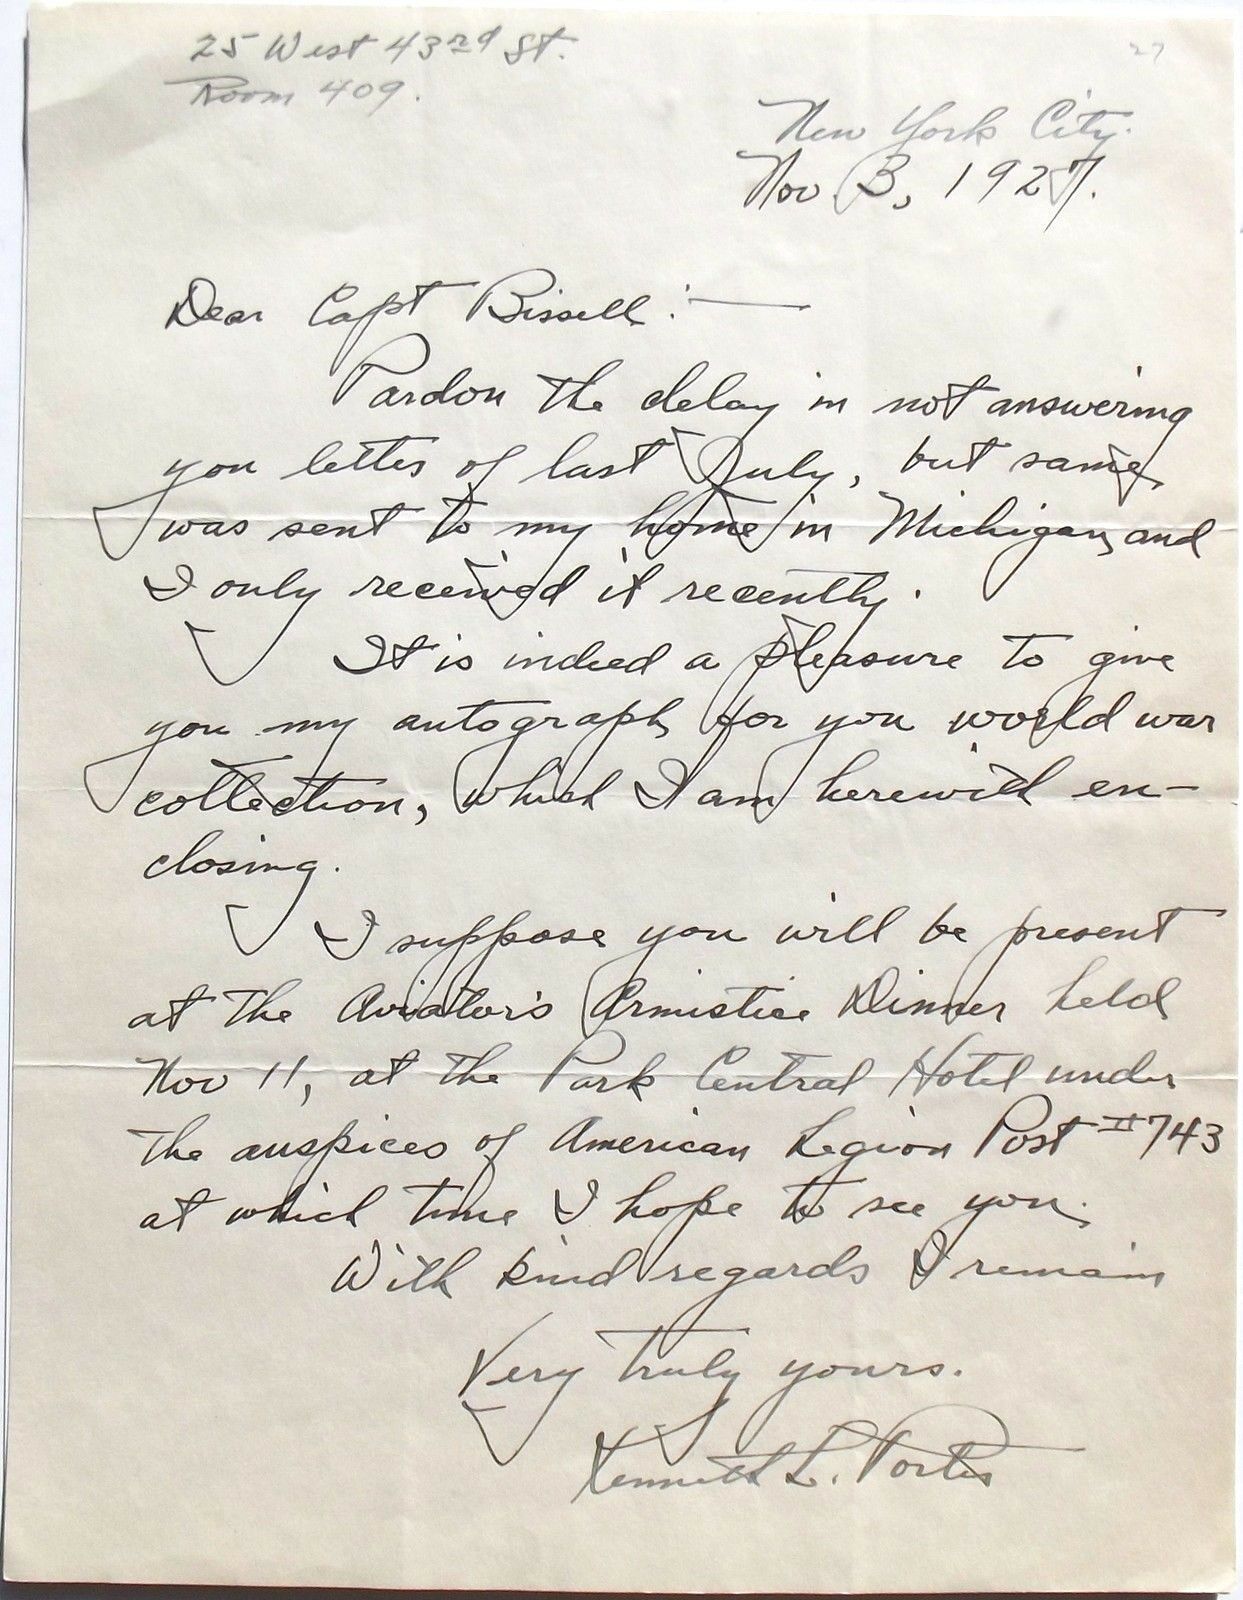 25 West 43rd St.
Room 409.
27
New York City.
Nov. 3, 1927.
Dear Capt Bissell:—
Pardon the delay in not answering
you letter of last July, but same
was sent to my home in Michigan, and
I only received it recently.
It is indeed a pleasure to give
you my autograph for you world war
collection, which I am herewith en-
closing.
I suppose you will be present
at the Aviator's Armistice Dinner held
Nov 11, at the Park Central Hotel under
the auspices of American Legion Post #743
at which time I hope to see you.
With kind regards I remain
Very truly yours.
Kenneth L. Porter